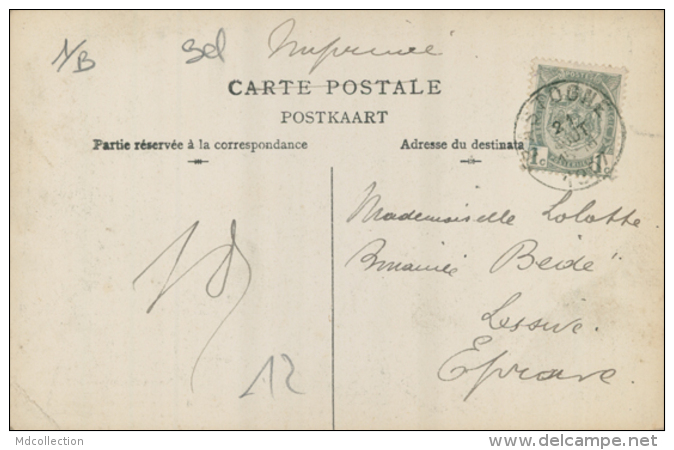 N/B
Imprimé
CARTE POSTALE
POSTKAART
Partie réservée à la correspondance
Adresse du destinata
BASTOGNE
1c
Mademoiselle Lolotte
Beidé
Lessive.
Eprave.
12
Mdcollection
www.delcampe.net